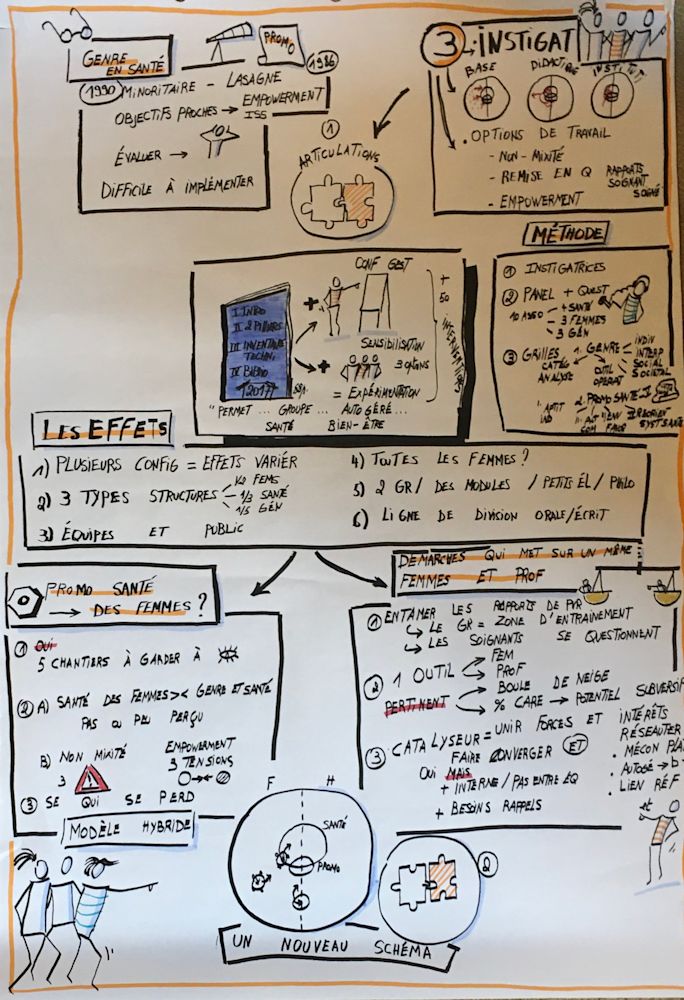 GENRE
EN SANTÉ
PROMO
1986
1990 MINORITAIRE - LASAGNE
OBJECTIFS PROCHES → EMPOWERMENT
ISS
ÉVALUER →
DIFFICILE À IMPLÉMENTER
1
ARTICULATIONS
3 → INSTIGAT
BASE DIDACTIQUE INSTITUT
• OPTIONS DE TRAVAIL
- NON-MIXITÉ
- REMISE EN Q RAPPORTS
SOIGNANT
SOIGNÉ
- EMPOWERMENT
MÉTHODE
1 INSTIGATRICES
2 PANEL + QUEST
10 ASSO + SANTÉ
3 FEMMES
3 GEN
3 GRILLES
CATÉG
ANALYSE
1. GENRE
OUTIL
OPERAT
INDIV
INTERP
SOCIAL
SOCIETAL
2. PROMO SANTÉ
CONF GEST
+
Sensibilisation
+
50
I INTRO
II 2 PILIERS
III INVENTAIRE
TECHNI
IV BIBLIO
(2017)
+
3 options
= Expérimentation
"PERMET ... GROUPE ... AUTOGÉRÉ...
SANTÉ BIEN-ÊTRE
LES EFFETS
1) PLUSIEURS CONFIG = EFFETS VARIÉR
2) 3 TYPES STRUCTURES
1/2 FEMS
1/3 SANTÉ
1/5 GEN
3) ÉQUIPES ET PUBLIC
4) TOUTES LES FEMMES ?
5) 2 GR/ DES MODULES / PETITS ÉL / PHILO
6) LIGNE DE DIVISION ORALE/ÉCRIT
PROMO SANTÉ
→ DES FEMMES ?
1 OUI
5 CHANTIERS À GARDER À
2 A) SANTÉ DES FEMMES >< GENRE ET SANTÉ
PAS OU PEU PERÇU
B) NON MIXITÉ EMPOWERMENT
3 3 TENSIONS
3 SE QUI SE PERD
MODÈLE HYBRIDE
DÉMARCHES QUI MET SUR UN MÊME
FEMMES ET PROF
1 ENTAMER LES RAPPORTS DE PVR
↳ LE GR = ZONE D'ENTRAINEMENT
↳ LES SOIGNANTS SE QUESTIONNENT
2 1 OUTIL
FEM
PROF
PERTINENT
BOULE DE NEIGE
% CARE → POTENTIEL SUBVERSIF
3 CATALYSEUR = UNIR FORCES ET INTÉRÊTS
FAIRE CONVERGER ET RÉSEAUTER
OUI MAIS
+ INTERNE / PAS ENTRE EQ
+ BESOINS RAPPELS
• MÉCON
• AUTOGÉ →
• LIEN RÉF
F H
SANTÉ
PROMO
2
UN NOUVEAU SCHÉMA